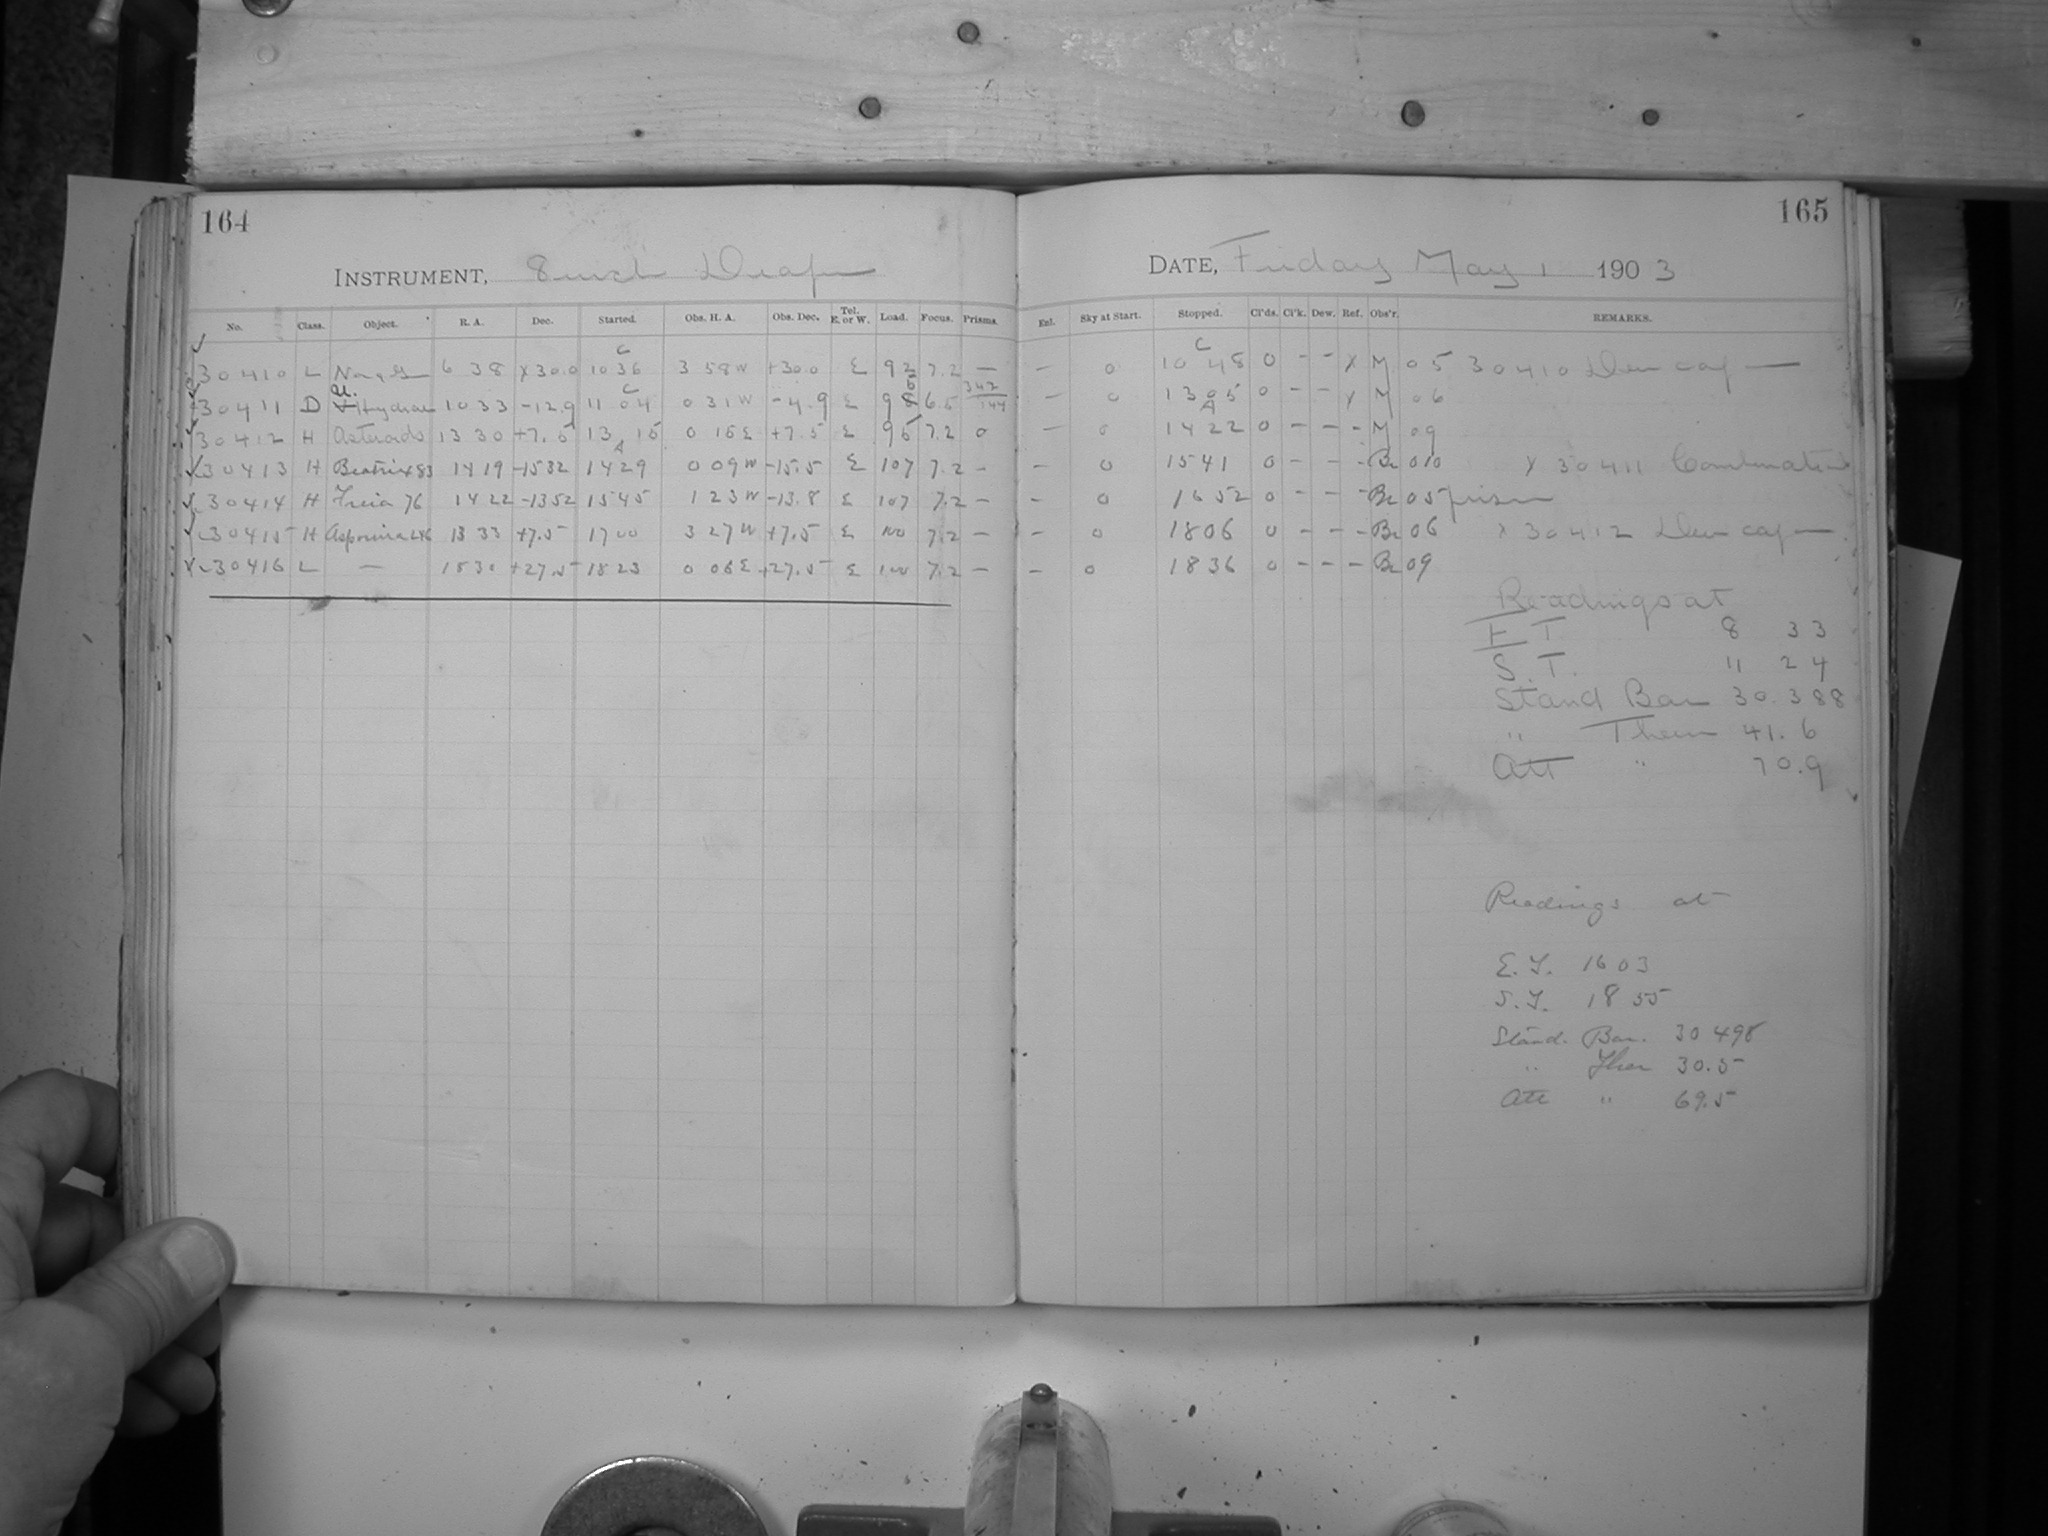 164
INSTRUMENT, 8 inch Draper
No. Class. Object. R. A. Dec. Started. Obs. H. A. Obs. Dec. Tel. E. or W. Load. Focus. Prisms.
30410 L 6 38 +30.0 10 36 C 3 58 W +30.0 E 92 7.2 —
30411 D U. Hydrae 10 33 -12.9 11 04 C 0 31 W -4.9 E 6.5 342 144
30412 H Asteroids 13 30 +7.5 13 15 0 15 E +7.5 E 95 7.2 0
30413 H Beatrix 83 14 19 -15 32 14 29 A 0 09 W -15.5 E 107 7.2 -
30414 H Freia 76 14 22 -13 52 15 45 1 23 W -13.8 E 107 7.2 -
30415 H Asporina 246 13 33 +7.5 17 00 3 27 W +7.5 E 100 7.2 —
30416 L — 18 30 +27.5 18 23 0 06 E +27.5 E 100 7.2 —
165
DATE, Friday May 1 1903
Ent. Sky at Start. Stopped. Cl'ds. Cl'k. Dew. Ref. Obs'r. REMARKS.
— 0 10 48 C 0 - - x M 05 30410 Dew cap —
— 0 13 05 0 - - x M 06
— 0 14 22 A 0 - - - M 09
— 0 15 41 0 - - - Br 010 x 30411 Combination
— 0 16 52 0 - - - Br 05 prism
— 0 18 06 0 - - - Br 06 x 30412 Dew cap —
— 0 18 36 0 - - - Br 09
Readings at
E T 8 33
S. T. 11 24
Stand Bar 30.388
" Ther 41.6
Att " 70.9
Readings at
E. T. 16 03
S. T. 18 55
Stand. Bar. 30 498
" Ther 30.5
Att " 69.5